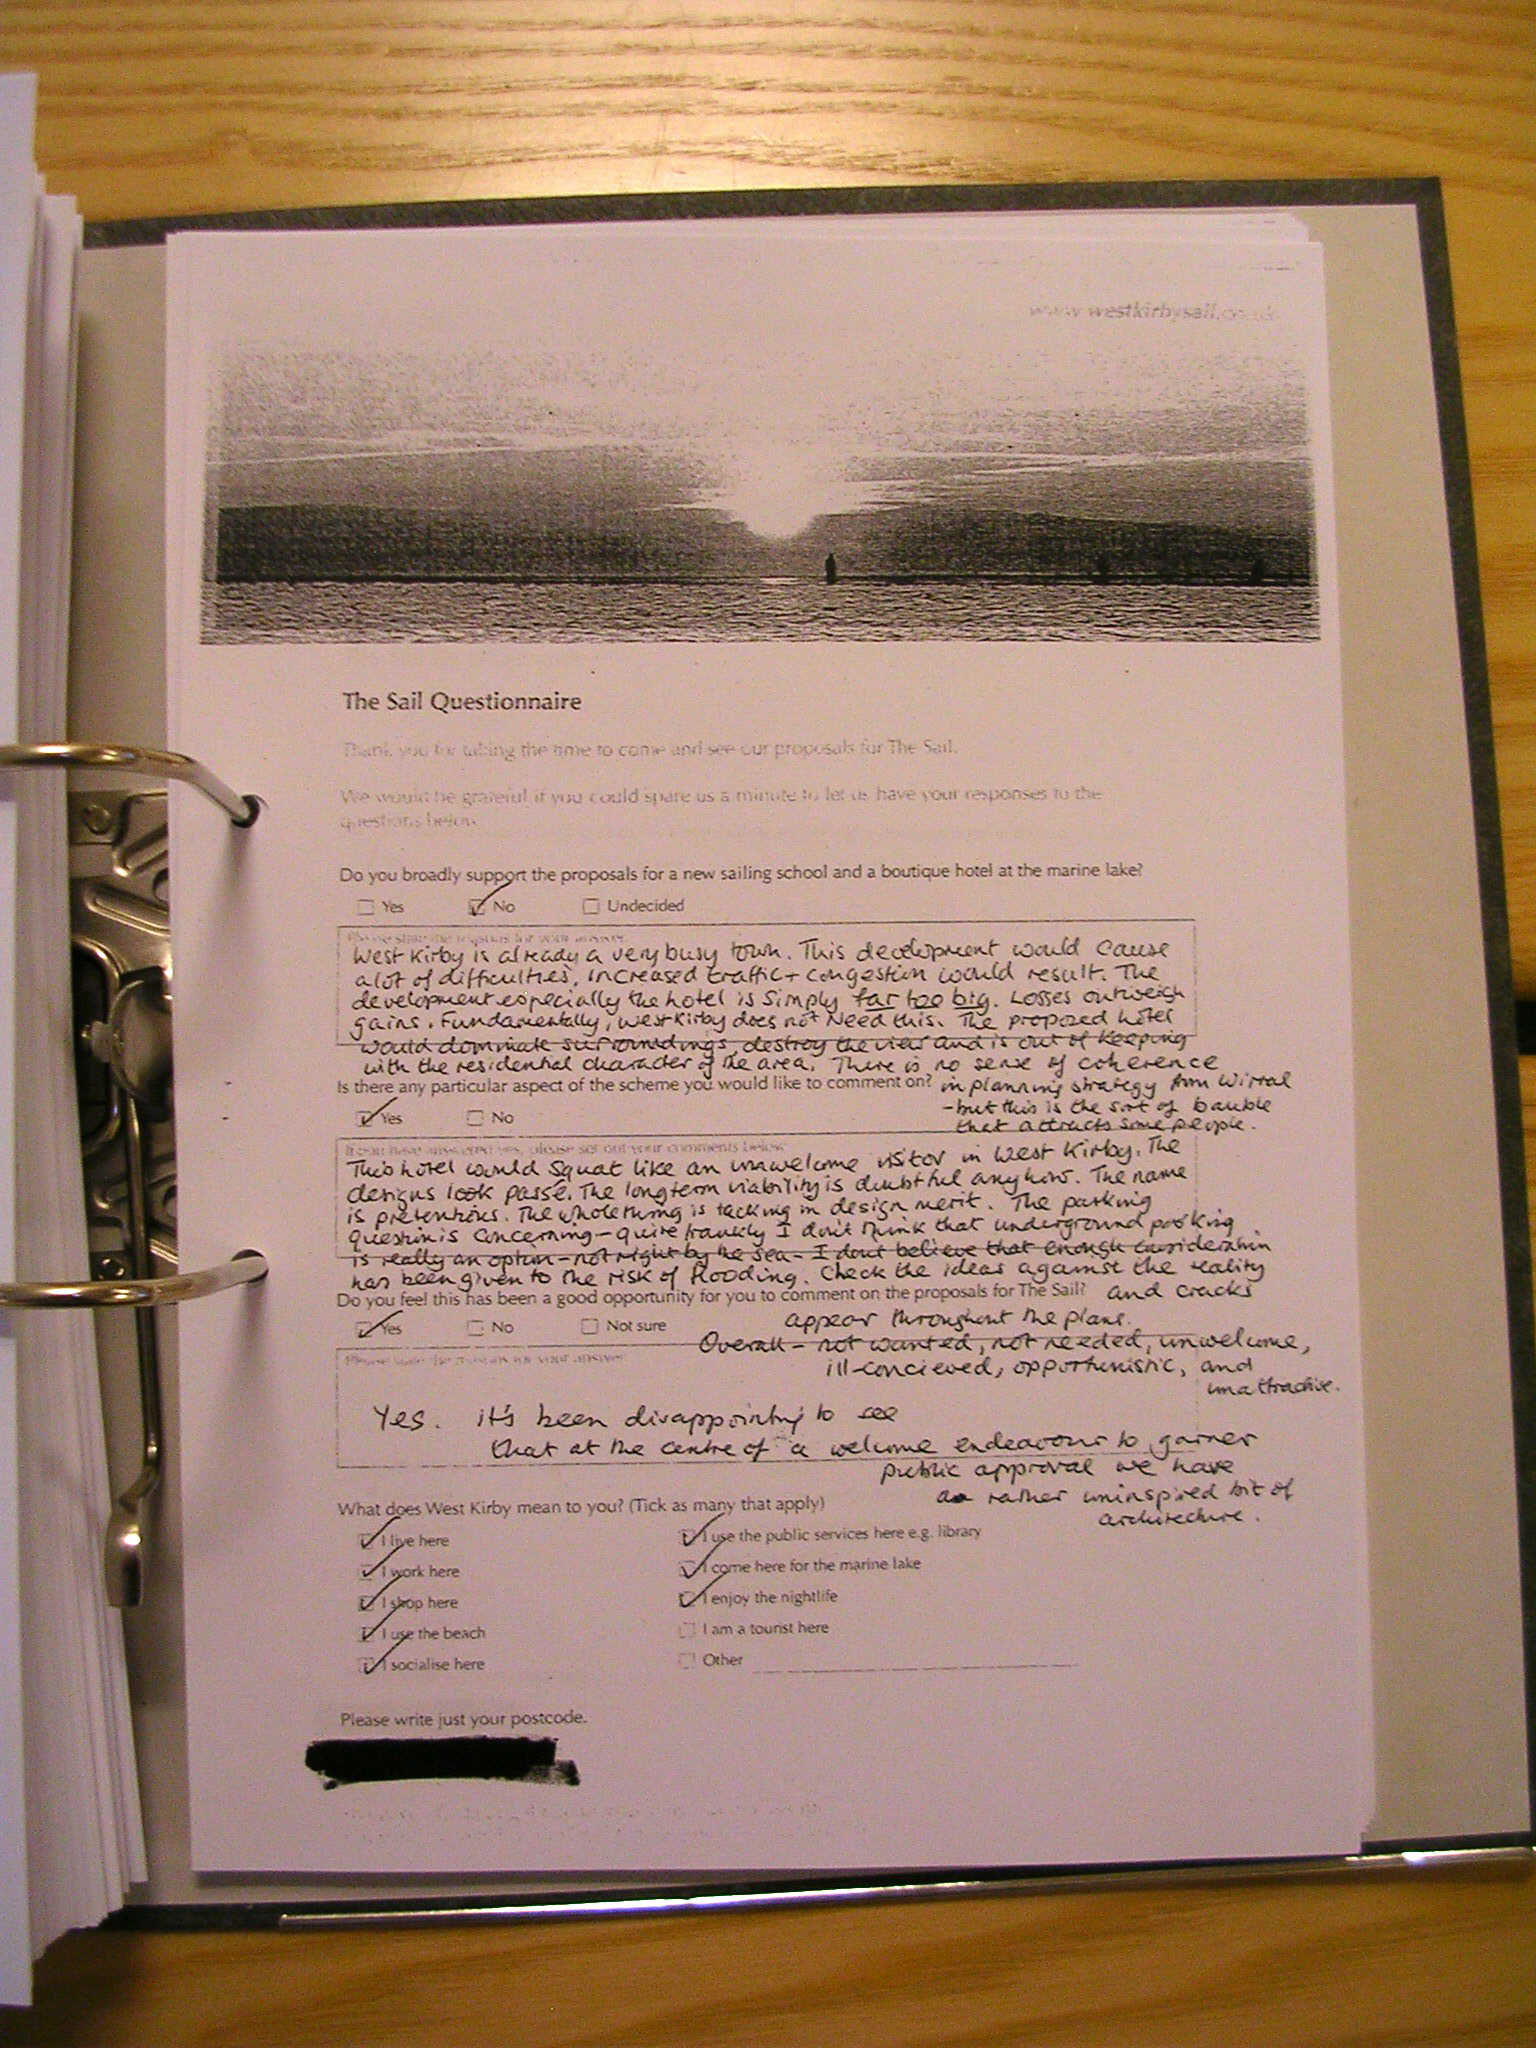 www.westkirbysail.co.uk
The Sail Questionnaire
Thank you for taking the time to come and see our proposals for The Sail.
We would be grateful if you could spare us a minute to let us have your responses to the
questions below.
Do you broadly support the proposals for a new sailing school and a boutique hotel at the marine lake?
Yes No Undecided
Please state the reasons for your answer.
West Kirby is already a very busy town. This development would cause
a lot of difficulties. Increased traffic + congestion would result. The
development especially the hotel is simply far too big. Losses outweigh
gains. Fundamentally, West Kirby does not need this. The proposed hotel
would dominate surroundings, destroy the view and is out of keeping
with the residential character of the area. There is no sense of coherence
Is there any particular aspect of the scheme you would like to comment on?
in planning strategy from Wirral
Yes No
- but this is the sort of bauble
that attracts some people.
If you have answered yes, please set out your comments below.
This hotel would squat like an unwelcome visitor in West Kirby. The
designs look passé. The longterm viability is doubtful anyhow. The name
is pretentious. The whole thing is lacking in design merit. The parking
question is concerning - quite frankly I don't think that underground parking
is really an option - not right by the sea - I dont believe that enough consideration
has been given to the risk of flooding. Check the ideas against the reality
Do you feel this has been a good opportunity for you to comment on the proposals for The Sail?
and cracks
Yes No Not sure
appear throughout the plans.
Overall - not wanted, not needed, unwelcome,
Please state the reasons for your answer.
ill-concieved, opportunistic, and
unattractive.
Yes. it's been disappointing to see
that at the centre of a welcome endeavour to garner
public approval we have
a rather uninspired bit of
architecture.
What does West Kirby mean to you? (Tick as many that apply)
I live here
I work here
I shop here
I use the beach
I socialise here
I use the public services here e.g. library
I come here for the marine lake
I enjoy the nightlife
I am a tourist here
Other
Please write just your postcode.